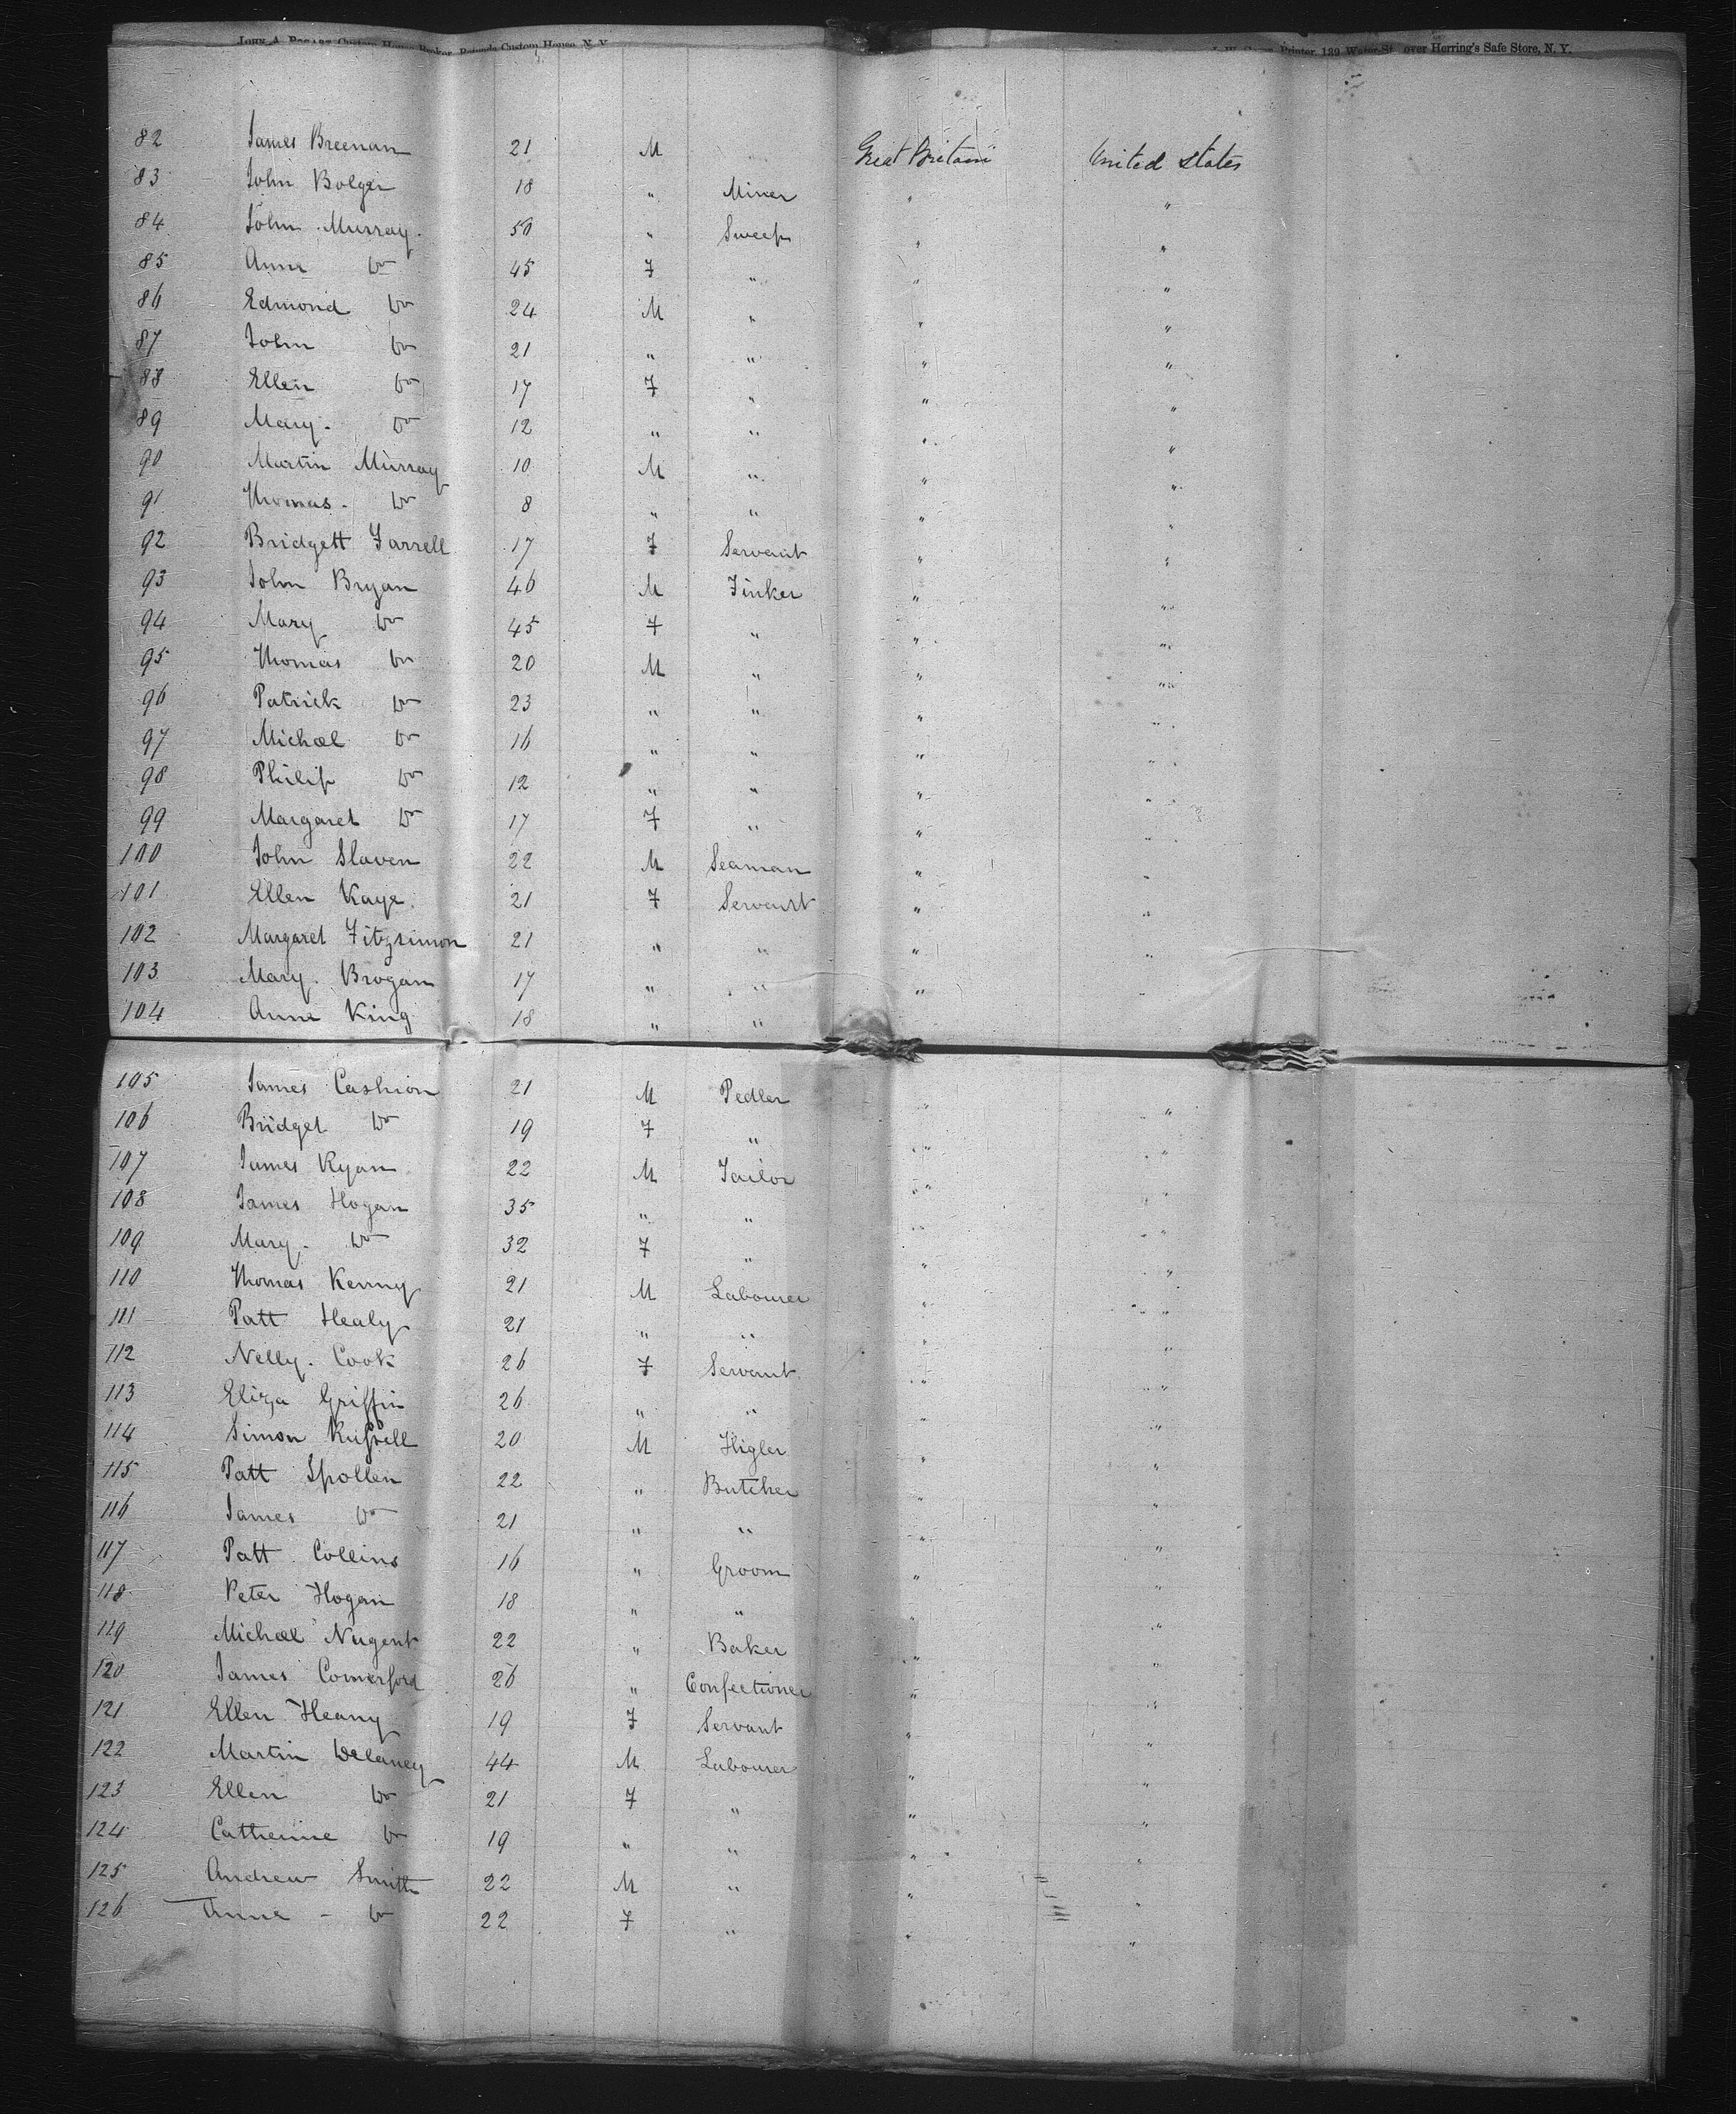 Custom House Broker, Bonds Custom House, N. Y. Printer, 139 Water St over Herring's Safe Store, N. Y.
82 James Breenan 21 M Great Britain United States
83 John Bolger 18 " Miner " "
84 John Murray 50 " Sweep " "
85 Anne Do 45 F " " "
86 Edmond Do 24 M " " "
87 John Do 21 " " " "
88 Ellen Do 17 F " " "
89 Mary Do 12 " " " "
90 Martin Murray 10 M " " "
91 Thomas Do 8 " " " "
92 Bridgett Farrell 17 F Servant " "
93 John Bryan 46 M Tinker " "
94 Mary Do 45 F " " "
95 Thomas Do 20 M " " "
96 Patrick Do 23 " " " "
97 Michael Do 16 " " " "
98 Philip Do 12 " " " "
99 Margaret Do 17 F " " "
100 John Slaven 22 M Seaman " "
101 Ellen Kaye 21 F Servant " "
102 Margaret Fitzsimon 21 " " " "
103 Mary Brogan 17 " " " "
104 Anne King 18 " "
105 James Cashion 21 M Pedler " "
106 Bridget Do 19 F " " "
107 James Ryan 22 M Tailor " "
108 James Hogan 35 " " " "
109 Mary Do 32 F " " "
110 Thomas Kenny 21 M Labourer " "
111 Patt Healy 21 " " " "
112 Nelly Cook 26 F Servant " "
113 Eliza Griffin 26 " " " "
114 Simon Russell 20 M Higler " "
115 Patt Spollen 22 " Butcher " "
116 James Do 21 " " " "
117 Patt Collins 16 " Groom " "
118 Peter Hogan 18 " " " "
119 Michael Nugent 22 " Baker " "
120 James Comerford 26 " Confectioner " "
121 Ellen Heany 19 F Servant " "
122 Martin Delaney 44 M Labourer " "
123 Ellen Do 21 F " " "
124 Catherine Do 19 " " " "
125 Andrew Smith 22 M " " "
126 Anne - Do 22 F " " "